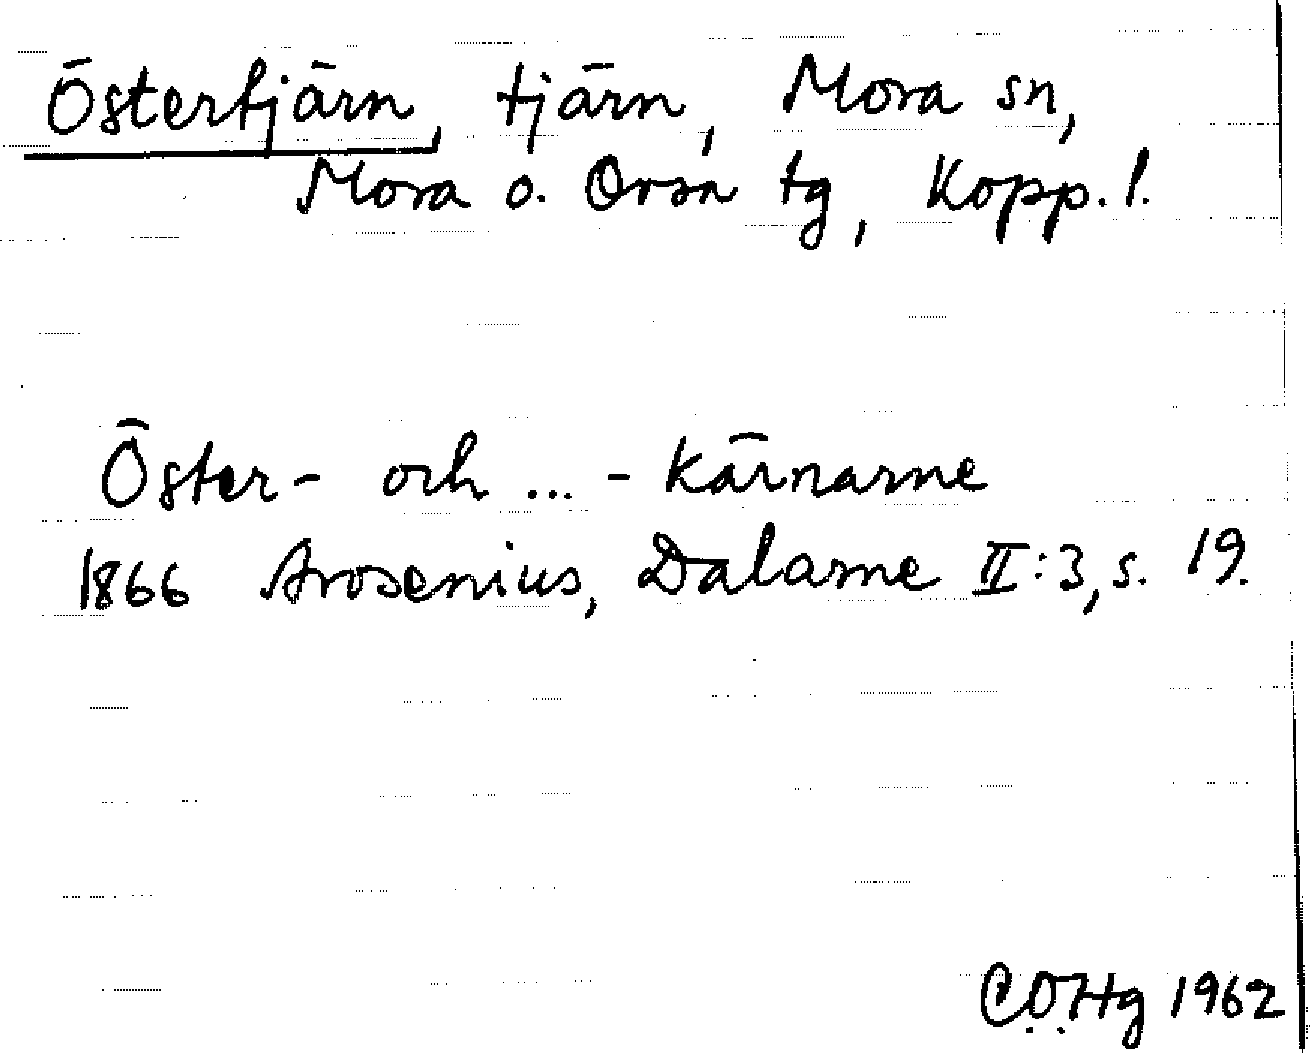 Östertjärn, tjärn, Mora sn,
Mora o. Orsa tg, Kopp. l.
Öster- och ... -kärnarne
1866 Arosenius, Dalarne II:3, s. 19.
C.O.Hg 1962